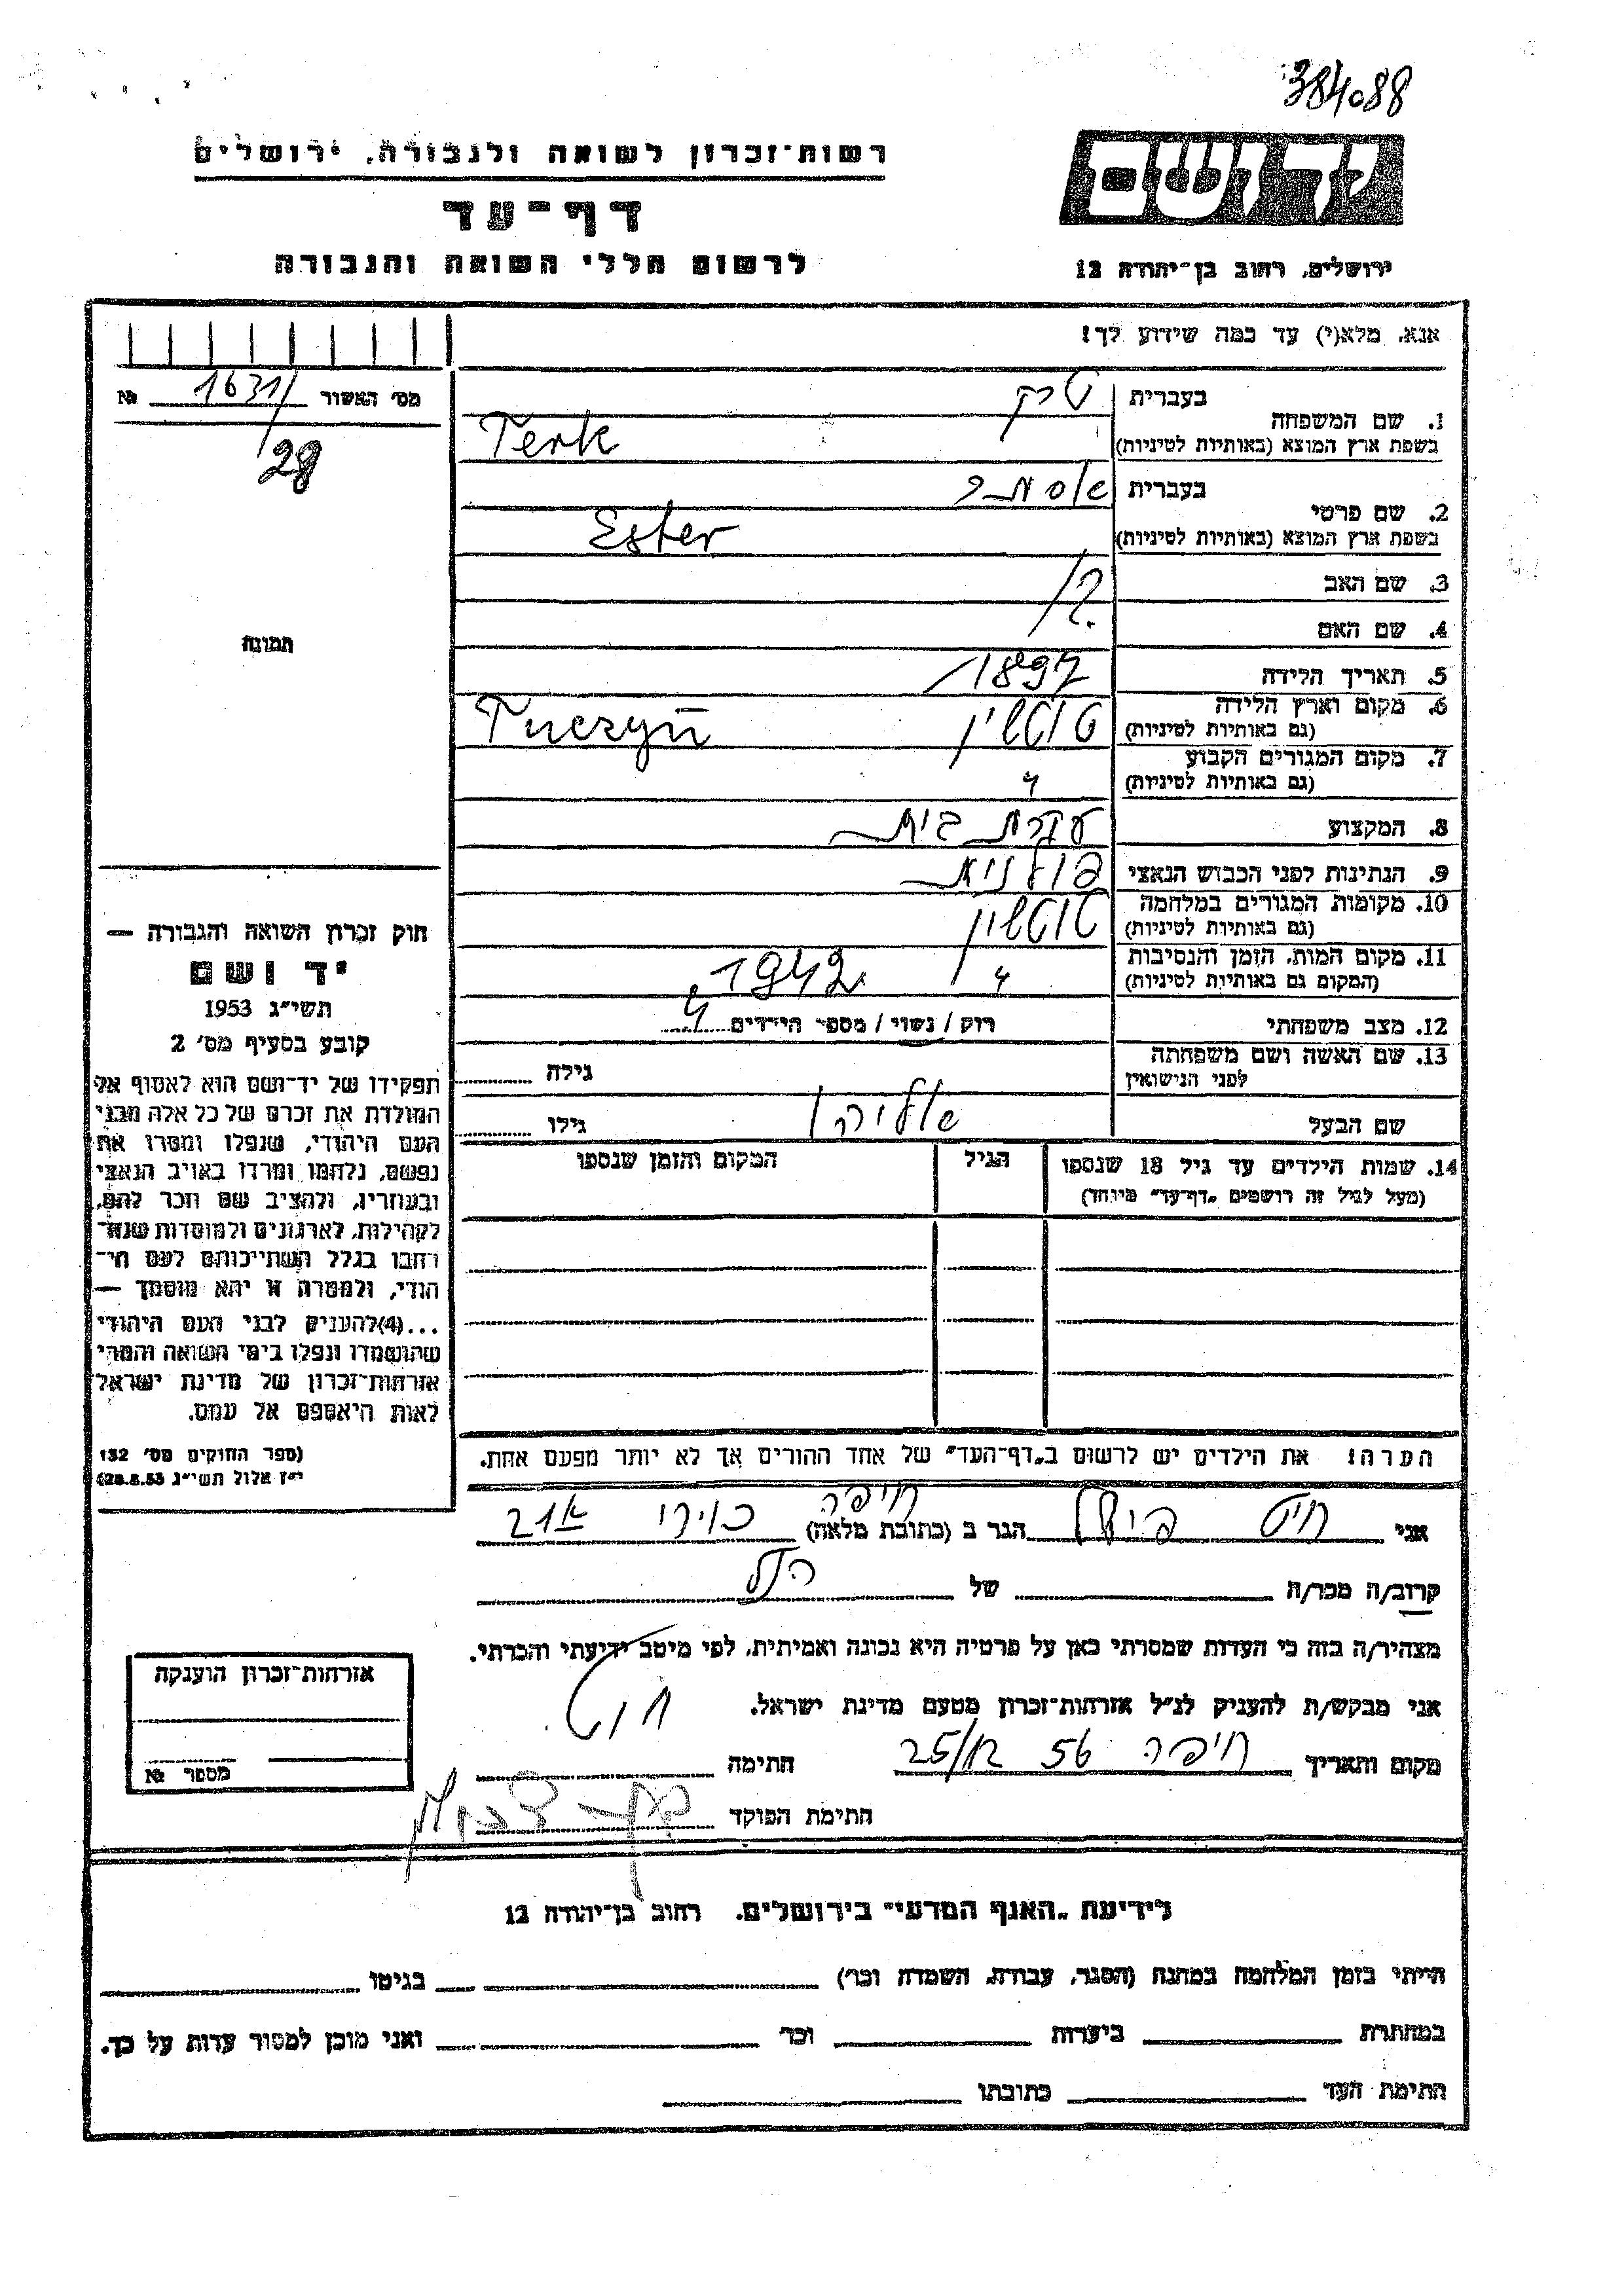 384088
רשות־זכרון לשואה ולגבורה, ירושלים
יד ושם
דף־עד
לרשום חללי השואה והגבורה
ירושלים, רחוב בן־יהודה 12
אנא, מלא(י) עד כמה שידוע לך!
מס׳ האשור 1631/ №
28
תמונה
1. שם המשפחה
בעברית טרק
בשפת ארץ המוצא (באותיות לטיניות) Terk
2. שם פרטי
בעברית אסתר
בשפת ארץ המוצא (באותיות לטיניות) Ester
3. שם האב ?
4. שם האם
5. תאריך הלידה 1897
6. מקום וארץ הלידה טוטשין Tuczyn
(גם באותיות לטיניות)
7. מקום המגורים הקבוע
(גם באותיות לטיניות) "
8. המקצוע עקרת בית
9. הנתינות לפני הכבוש הנאצי פולנית
10. מקומות המגורים במלחמה טוטשין
(גם באותיות לטיניות)
11. מקום המות, הזמן והנסיבות " 1942
(המקום גם באותיות לטיניות)
12. מצב משפחתי רווק / נשוי / מספר הילדים 4
13. שם האשה ושם משפחתה
לפני הנישואין גילה
שם הבעל אליהו גילו
14. שמות הילדים עד גיל 18 שנספו הגיל המקום והזמן שנספו
(מעל לגיל זה רושמים „דף־עד” מיוחד)
חוק זכרון השואה והגבורה —
יד ושם
תשי״ג 1953
קובע בסעיף מס׳ 2
תפקידו של יד־ושם הוא לאסוף אל
המולדת את זכרם של כל אלה מבני
העם היהודי, שנפלו ומסרו את
נפשם, נלחמו ומרדו באויב הנאצי
ובעוזריו, ולהציב שם וזכר להם,
לקהילות, לארגונים ולמוסדות שנח־
רבו בגלל השתייכותם לעם הי־
הודי, ולמטרה זו יהא מוסמך —
...(4)להעניק לבני העם היהודי
שהושמדו ונפלו בימי השואה והמרי
אזרחות־זכרון של מדינת ישראל
לאות היאספם אל עמם.
(ספר החוקים מס׳ 132
י״ז אלול תשי״ג 28.8.53)
הערה! את הילדים יש לרשום ב„דף־העד” של אחד ההורים אך לא יותר מפעם אחת.
אני חיט הגר ב (כתובת מלאה) חיפה
קרוב/ה מכר/ה של הנ״ל
מצהיר/ה בזה כי העדות שמסרתי כאן על פרטיה היא נכונה ואמיתית, לפי מיטב ידיעתי והכרתי.
אני מבקש/ת להעניק לנ״ל אזרחות־זכרון מטעם מדינת ישראל.
מקום ותאריך חיפה 56 25/12 חתימה
חתימת הפוקד
אזרחות־זכרון הוענקה
מספר №
לידיעת „האגף המדעי” בירושלים, רחוב בן־יהודה 12
הייתי בזמן המלחמה במחנה (הסגר, עבודה, השמדה וכו׳) בגיטו
במחתרת ביערות וכו׳ ואני מוכן למסור עדות על כך.
חתימת העד כתובתו